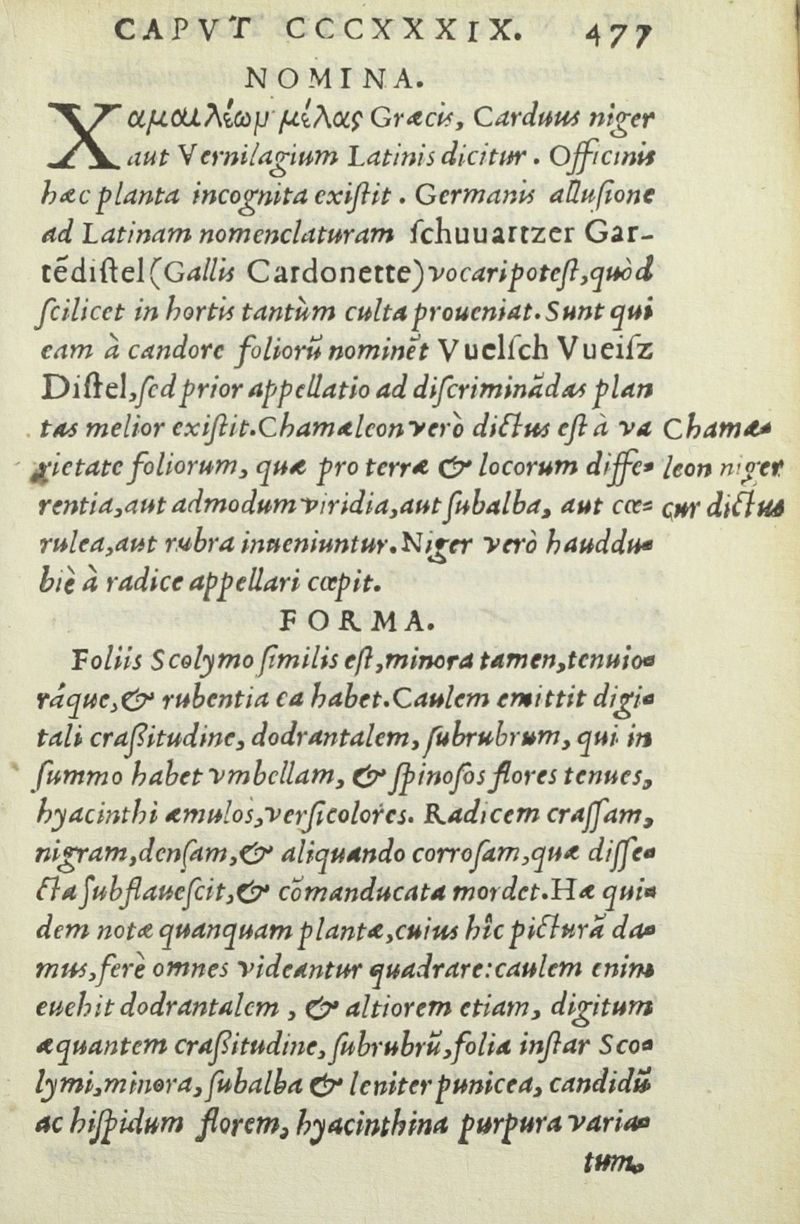 CAPVT CCCXXXIX. 477
NOMINA.
Χαμαιλέων μέλας Græcis, Carduus niger
aut Vernilagium Latinis dicitur. Officinis
hæc planta incognita exiſtit. Germanis alluſione
ad Latinam nomenclaturam ſchuuartzer Gar-
tẽdiſtel (Gallis Cardonette) vocari poteſt, quòd
ſcilicet in hortis tantùm culta proueniat. Sunt qui
eam à candore foliorũ nominẽt Vuelſch Vueiſz
Diſtel, ſed prior appellatio ad diſcriminãdas plan
tas melior exiſtit. Chamæleon verò dictus eſt à va
rietate foliorum, quæ pro terræ & locorum diffe-
rentia, aut admodum viridia, aut ſubalba, aut cœ-
rulea, aut rubra inueniuntur. Niger verò hauddu-
biè à radice appellari cœpit.
Chamæ-
leon niger
cur dictus
FORMA.
Foliis Scolymo ſimilis eſt, minora tamen, tenuio-
ráque, & rubentia ea habet. Caulem emittit digi-
tali craſſitudine, dodrantalem, ſubrubrum, qui in
ſummo habet vmbellam, & ſpinoſos flores tenues,
hyacinthi æmulos, verſicolores. Radicem craſſam,
nigram, denſam, & aliquando corroſam, quæ diſſe-
cta ſubflaueſcit, & cõmanducata mordet. Hæ qui-
dem notæ quanquam plantæ, cuius hîc picturã da-
mus, ferè omnes videantur quadrare: caulem enim
euehit dodrantalem, & altiorem etiam, digitum
æquantem craſſitudine, ſubrubrũ, folia inſtar Sco-
lymi, minora, ſubalba & leniter punicea, candidũ
ac hiſpidum florem, hyacinthina purpura varia-
tum.